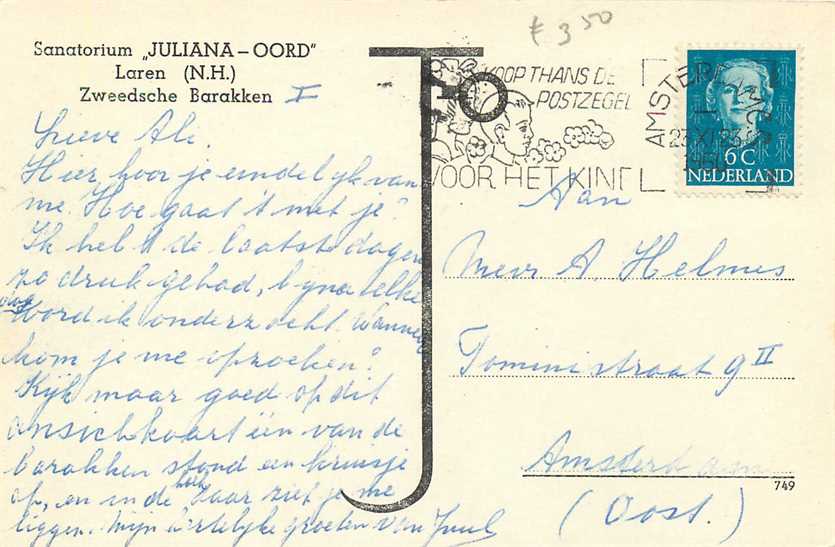 Sanatorium „JULIANA – OORD"
Laren (N.H.)
Zweedsche Barakken I
Lieve Ali.
Hier hoor je eindelijk van
me. Hoe gaat 't met je?
Ik heb 't de laatste dagen
zo druk gehad, bijna elke
dag
word ik onderzocht. Wanneer
kom je me opzoeken?
Kijk maar goed op dit
ansichtkaart één van de
barakken stond een kruisje
op, en in die hoek daar zief je me
liggen. Mijn hartelijke groeten van Juul
£ 3 50
KOOP THANS DE
POSTZEGEL
VOOR HET KIND
AMSTERDAM
23 XI 23
1951
6 C
NEDERLAND
Aan
Mevr A. Helmes
Toministraat 9 II
Amsterdam
(Oost.)
749